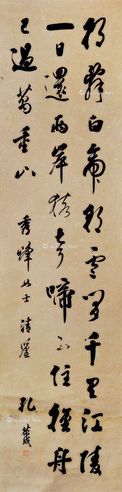 朝辭白帝彩雲間千里江陵
一日還兩岸猿聲啼不住輕舟
已過萬重山 秀峰女士 清 孔德成